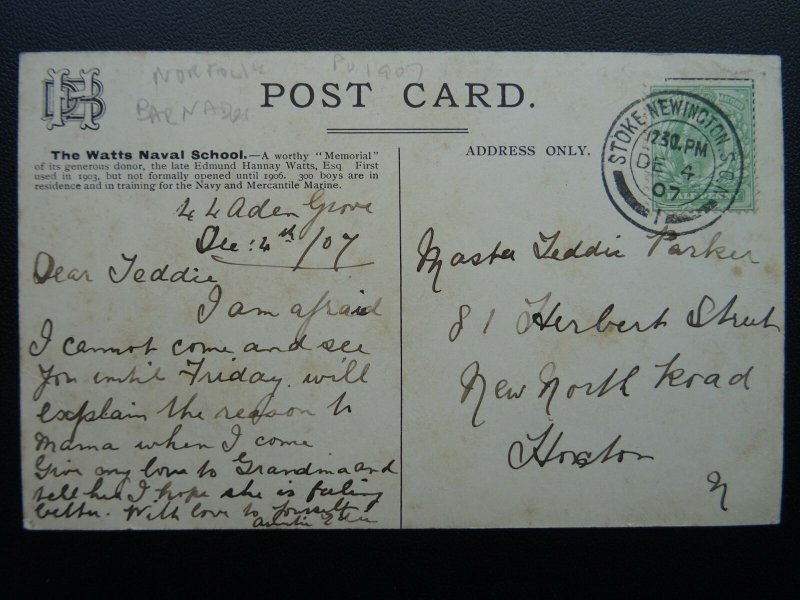 NORFOLK
PU 1907
BARNADOS
POST CARD.
The Watts Naval School.—A worthy "Memorial"
of its generous donor, the late Edmund Hannay Watts, Esq. First
used in 1903, but not formally opened until 1906. 300 boys are in
residence and in training for the Navy and Mercantile Marine.
44 Aden Grove
Dec: 4th /07
Dear Teddie
I am afraid
I cannot come and see
you until Friday. will
explain the reason to
Mama when I come
Give my love to Grandma and
tell her I hope she is feeling
better. With love to yourself
Auntie
ADDRESS ONLY.
STOKE-NEWINGTON S.O.N
12 30 PM
DE 4
07
1
Master Teddie Parker
81 Herbert Street
New North Road
Hoxton
N